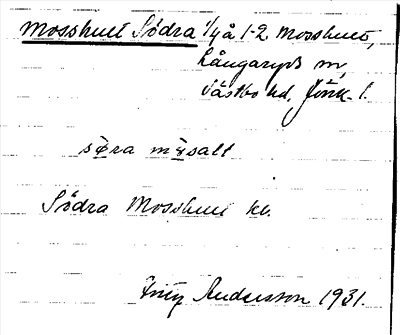 Mosshult Södra 1/4 å 1-2 Mosshult,
Långaryds sn,
Västbo hd, Jönk. l.
söra måsalt
Södra Mosshult kb.
Andersson 1931.